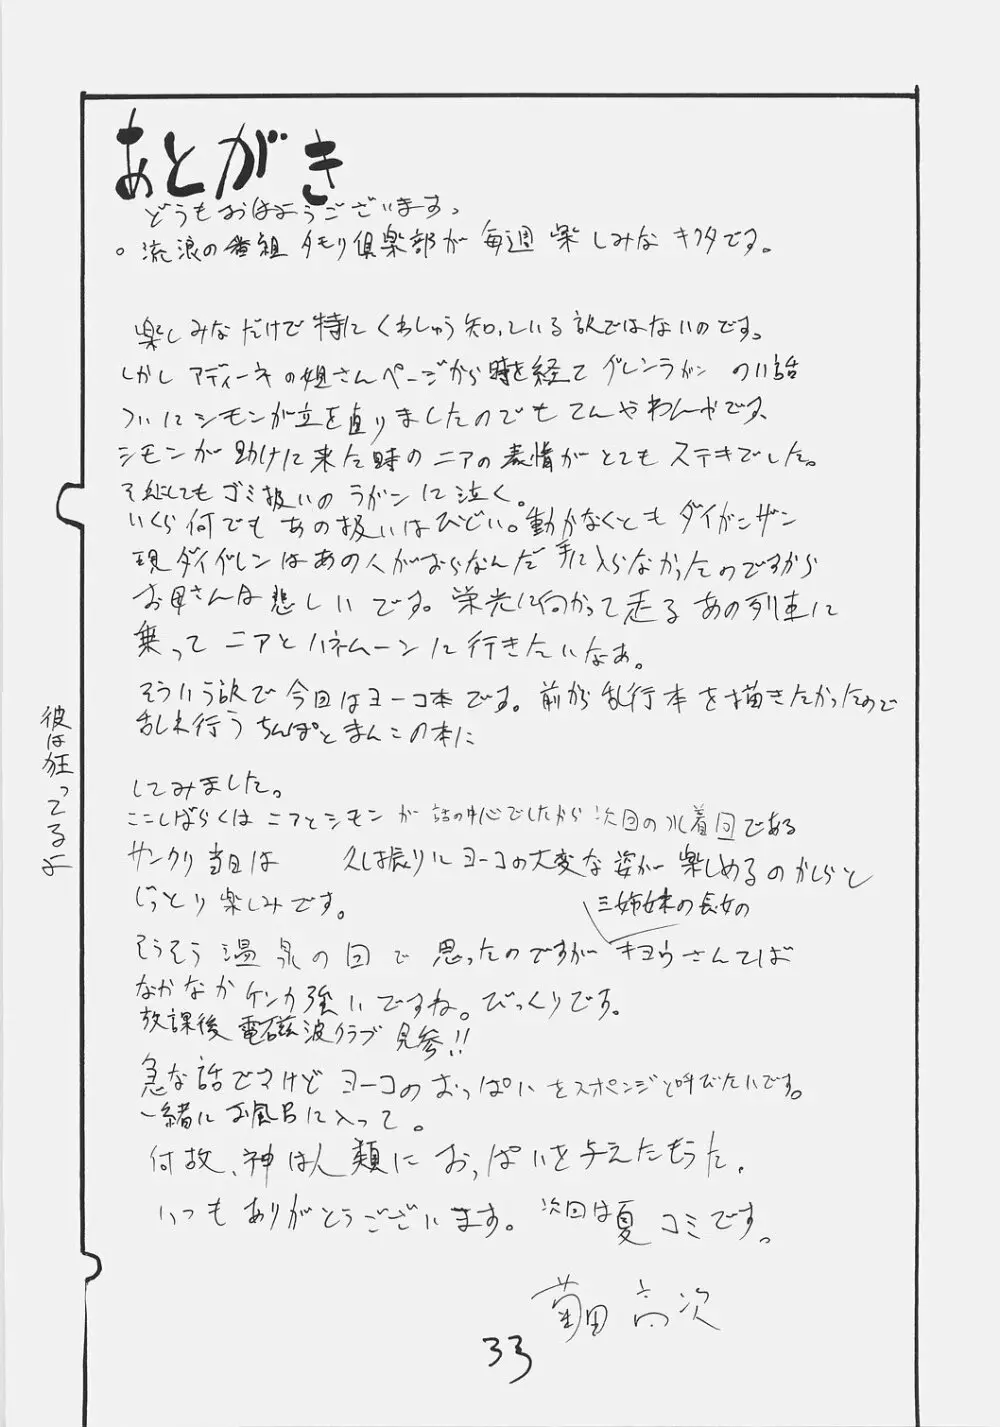 あとがき
どうもおはようございます。
。流浪の番組 タモリ倶楽部が 毎週 楽しみな キクタです。
楽しみなだけで特にくわしゅう知っている訳ではないのです。
しかし アディーネの姐さんページから時を経て グレンラガン の11話
ついにシモンが立ち直りましたのでもてんやわんやです、
シモンが助けに来た時のニアの表情がとてもステキでした。
それにしてもゴミ扱いの ラガンに泣く。
いくら何でもあの扱いはひどい。動かなくとも ダイガンザン
現ダイグレンはあの人がおらなんだ 手に入らなかったのですから
お母さんは悲しいです。栄光に向かって走る あの列車に
乗って ニアとハネムーンに行きたいなぁ。
そういう訳で今回はヨーコ本です。前から乱行本を描きたかったので
乱れ行う ちんぽとまんこの本に
してみました。
ここしばらくはニアとシモンが話の中心でしたから次回の水着回である
サンクリ当日は 久し振りにヨーコの大変な姿が楽しめるのかしらと
じっとり楽しみです。
三姉妹の長女の
そうそう温泉の回で思ったのですが キヨウさんてば
なかなかケンカ強いですね。びっくりです。
放課後 電磁波クラブ 見参!!
急な話ですけど ヨーコのおっぱいをスポンジと呼びたいです。
一緒にお風呂に入って。
何故、神は人類におっぱいを与えたもうた。
いつもありがとうございます。次回は夏コミです。
菊田 高次
33
彼は狂ってるよ